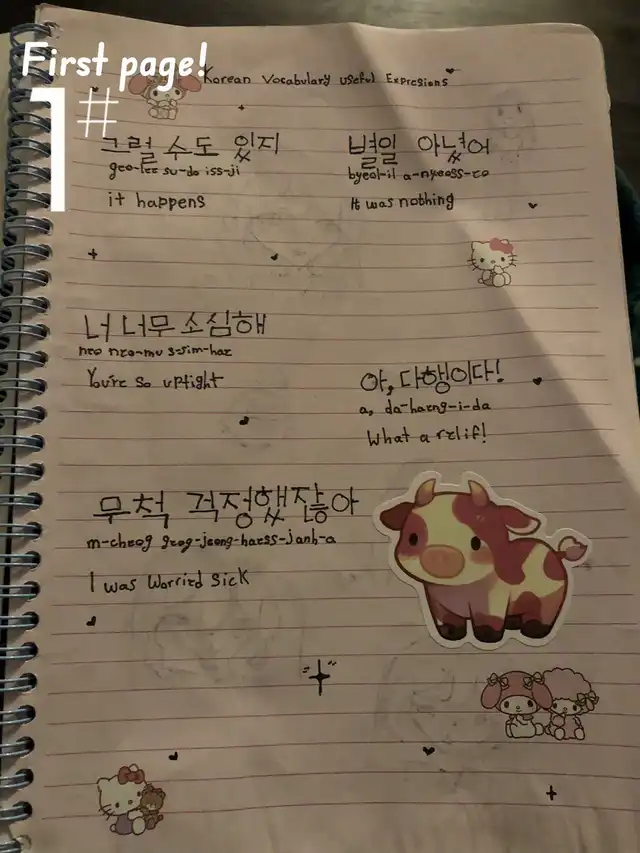 First page!
1#
Korean Vocabulary useful Expresions
그럴 수도 있지
geo-lee su-do iss-ji
it happens
별일 아녔어
byeol-il a-nyeoss-eo
It was nothing
너 너무 소심해
neo neo-mu s-sim-hae
You're so uptight
아, 다행이다!
a, da-haeng-i-da
What a relif!
무척 걱정했잖아
m-cheog geog-jeong-haess-janh-a
I was worried sick